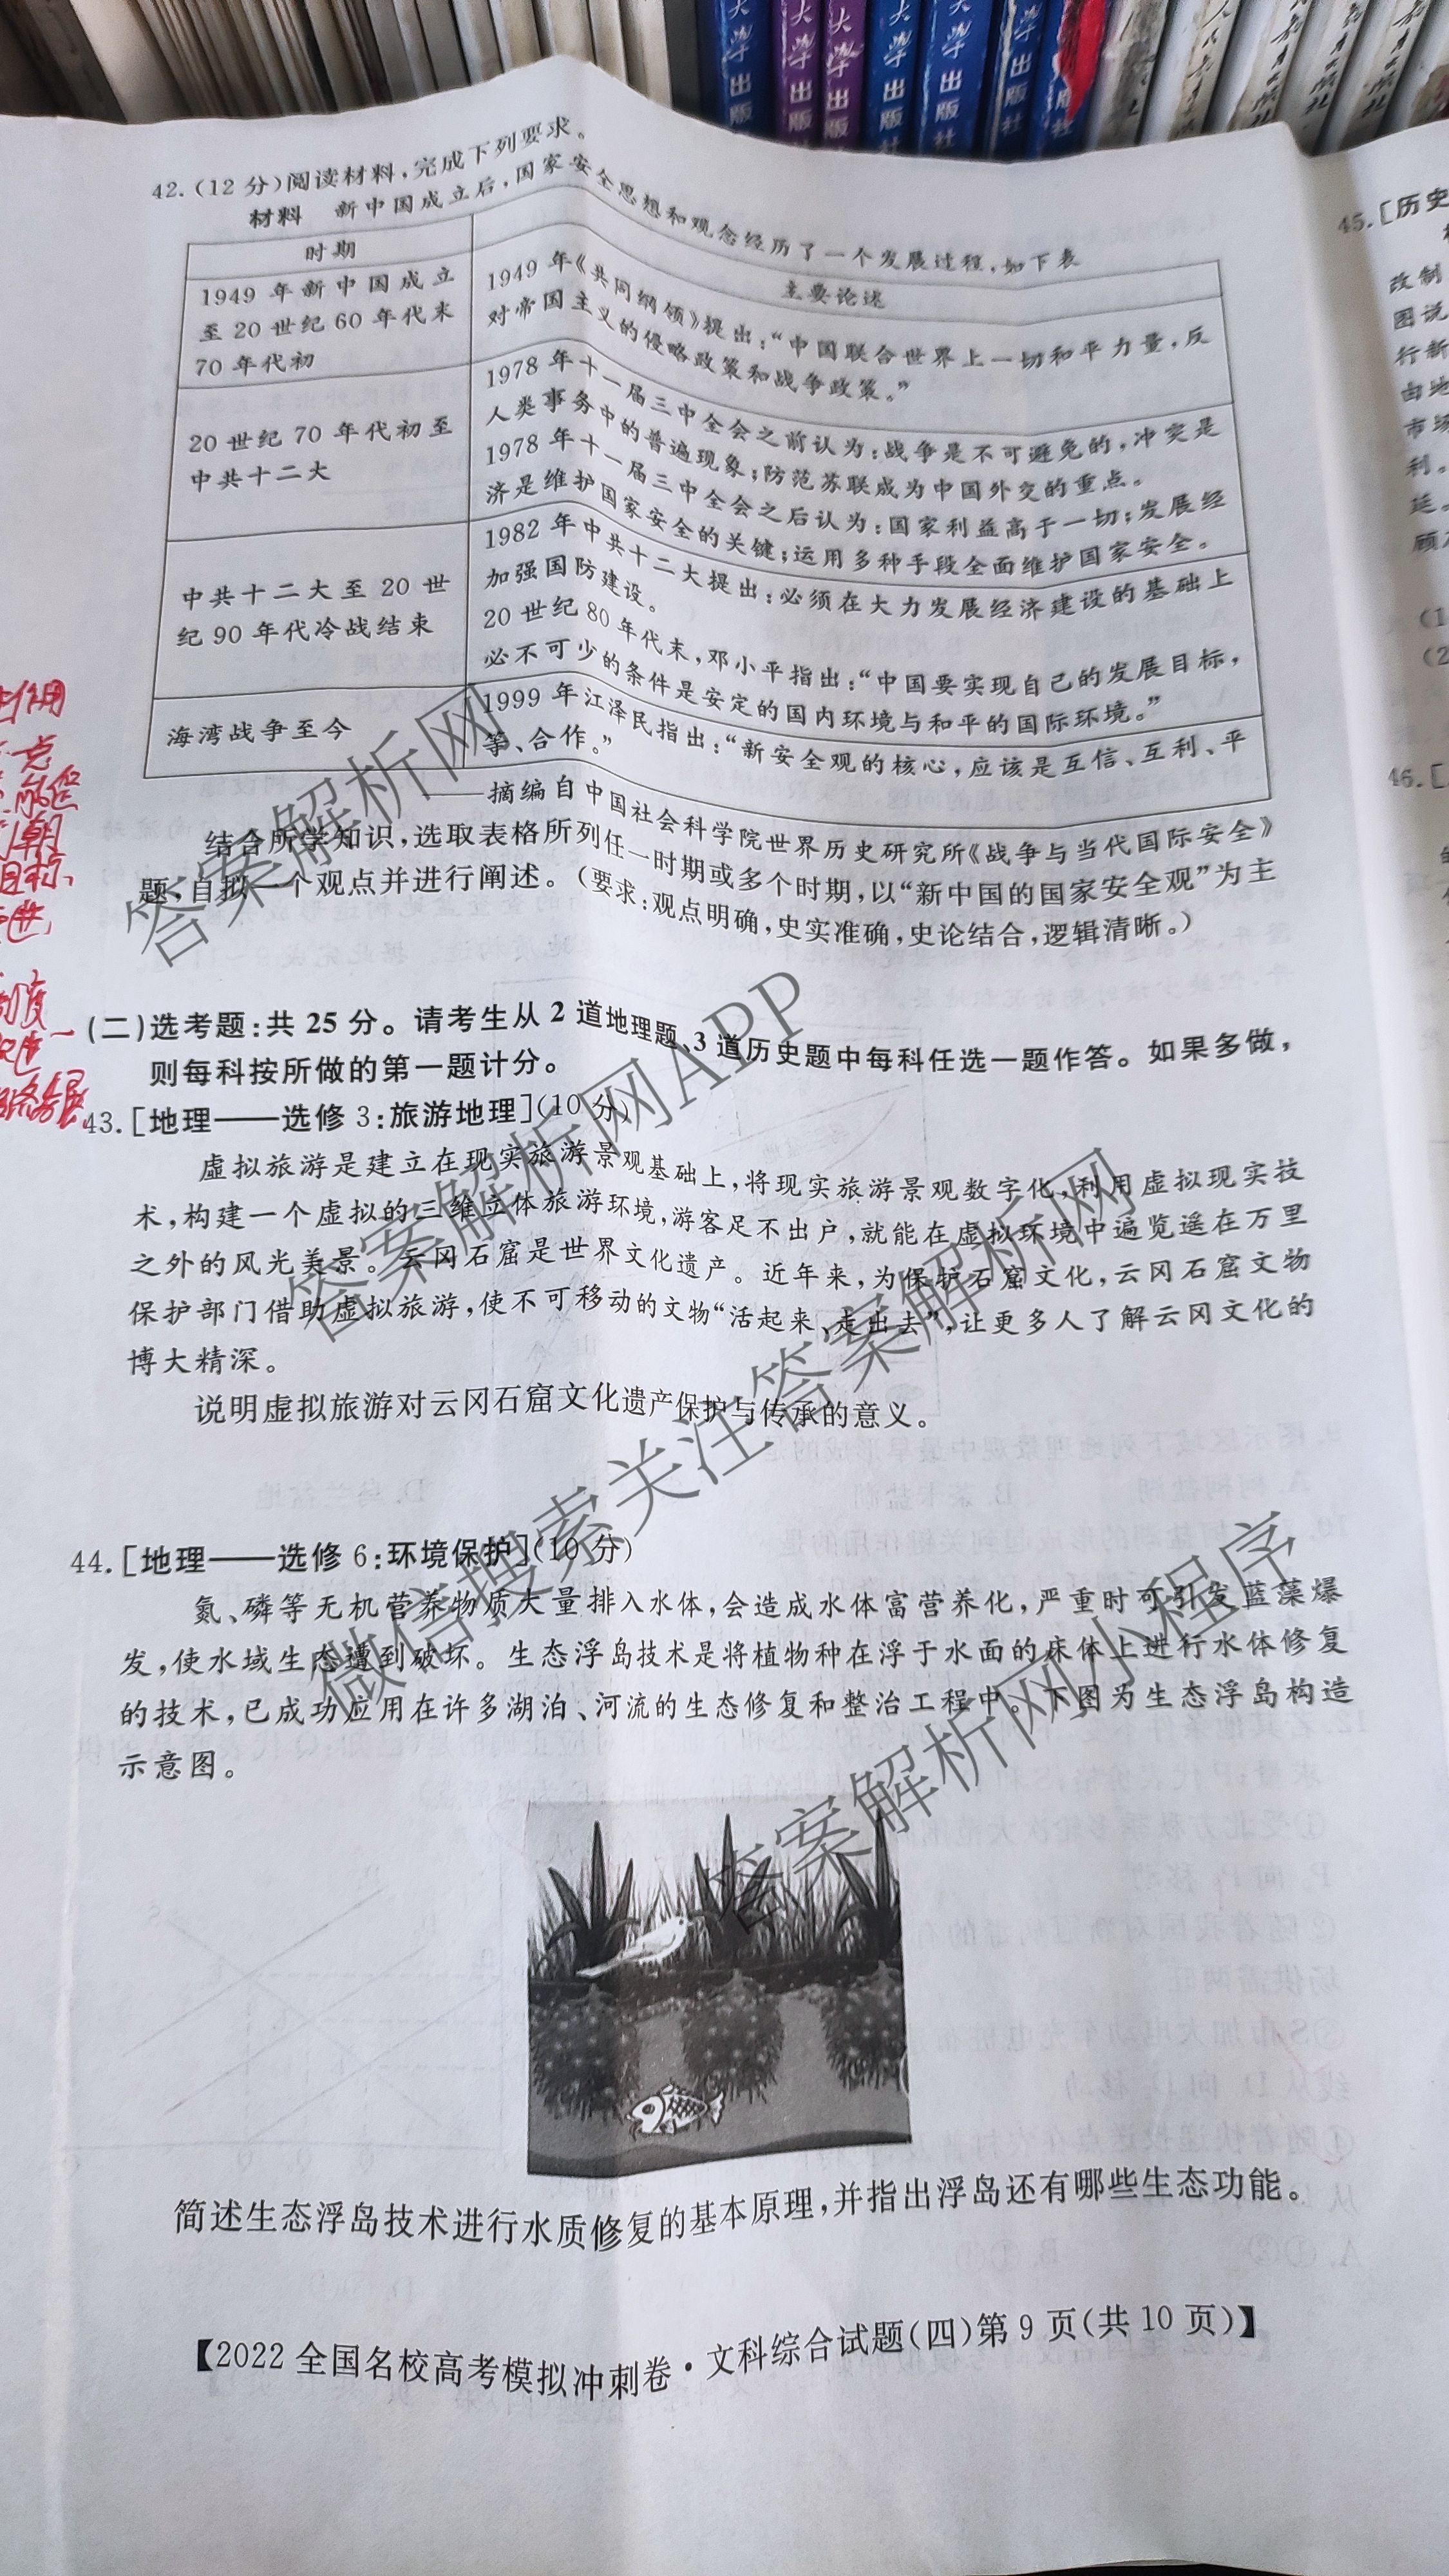 大学出版
大学出版
大学出版
大学出版
大学出版社
学出版社
42.(12分)阅读材料,完成下列要求。
材料 新中国成立后,国家安全思想和观念经历了一个发展过程,如下表
时期
主要论述
1949年新中国成立
至20世纪60年代末
70年代初
1949年《共同纲领》提出:“中国联合世界上一切和平力量,反
对帝国主义的侵略政策和战争政策。”
20世纪70年代初至
中共十二大
1978年十一届三中全会之前认为:战争是不可避免的,冲突是
人类事务中的普遍现象;防范苏联成为中国外交的重点。
1978年十一届三中全会之后认为:国家利益高于一切;发展经
济是维护国家安全的关键;运用多种手段全面维护国家安全。
中共十二大至20世
纪90年代冷战结束
1982年中共十二大提出:必须在大力发展经济建设的基础上
加强国防建设。
20世纪80年代末,邓小平指出:“中国要实现自己的发展目标,
必不可少的条件是安定的国内环境与和平的国际环境。”
海湾战争至今
1999年江泽民指出:“新安全观的核心,应该是互信、互利、平
等、合作。”
——摘编自中国社会科学院世界历史研究所《战争与当代国际安全》
结合所学知识,选取表格所列任一时期或多个时期,以“新中国的国家安全观”为主
题,自拟一个观点并进行阐述。(要求:观点明确,史实准确,史论结合,逻辑清晰。)
(二)选考题:共25分。请考生从2道地理题、3道历史题中每科任选一题作答。如果多做,
则每科按所做的第一题计分。
43.[地理——选修3:旅游地理](10分)
虚拟旅游是建立在现实旅游景观基础上,将现实旅游景观数字化,利用虚拟现实技
术,构建一个虚拟的三维立体旅游环境,游客足不出户,就能在虚拟环境中遍览遥在万里
之外的风光美景。云冈石窟是世界文化遗产。近年来,为保护石窟文化,云冈石窟文物
保护部门借助虚拟旅游,使不可移动的文物“活起来、走出去”,让更多人了解云冈文化的
博大精深。
说明虚拟旅游对云冈石窟文化遗产保护与传承的意义。
44.[地理——选修6:环境保护](10分)
氮、磷等无机营养物质大量排入水体,会造成水体富营养化,严重时可引发蓝藻爆
发,使水域生态遭到破坏。生态浮岛技术是将植物种在浮于水面的床体上进行水体修复
的技术,已成功应用在许多湖泊、河流的生态修复和整治工程中。下图为生态浮岛构造
示意图。
简述生态浮岛技术进行水质修复的基本原理,并指出浮岛还有哪些生态功能。
【2022全国名校高考模拟冲刺卷·文科综合试题(四)第9页(共10页)】
45.[历史
改制
图说
行新
由地
市场
利。
延。
(1
(2
46.[
答案解析网
答案解析网APP
微信搜索关注答案解析网
答案解析网小程序